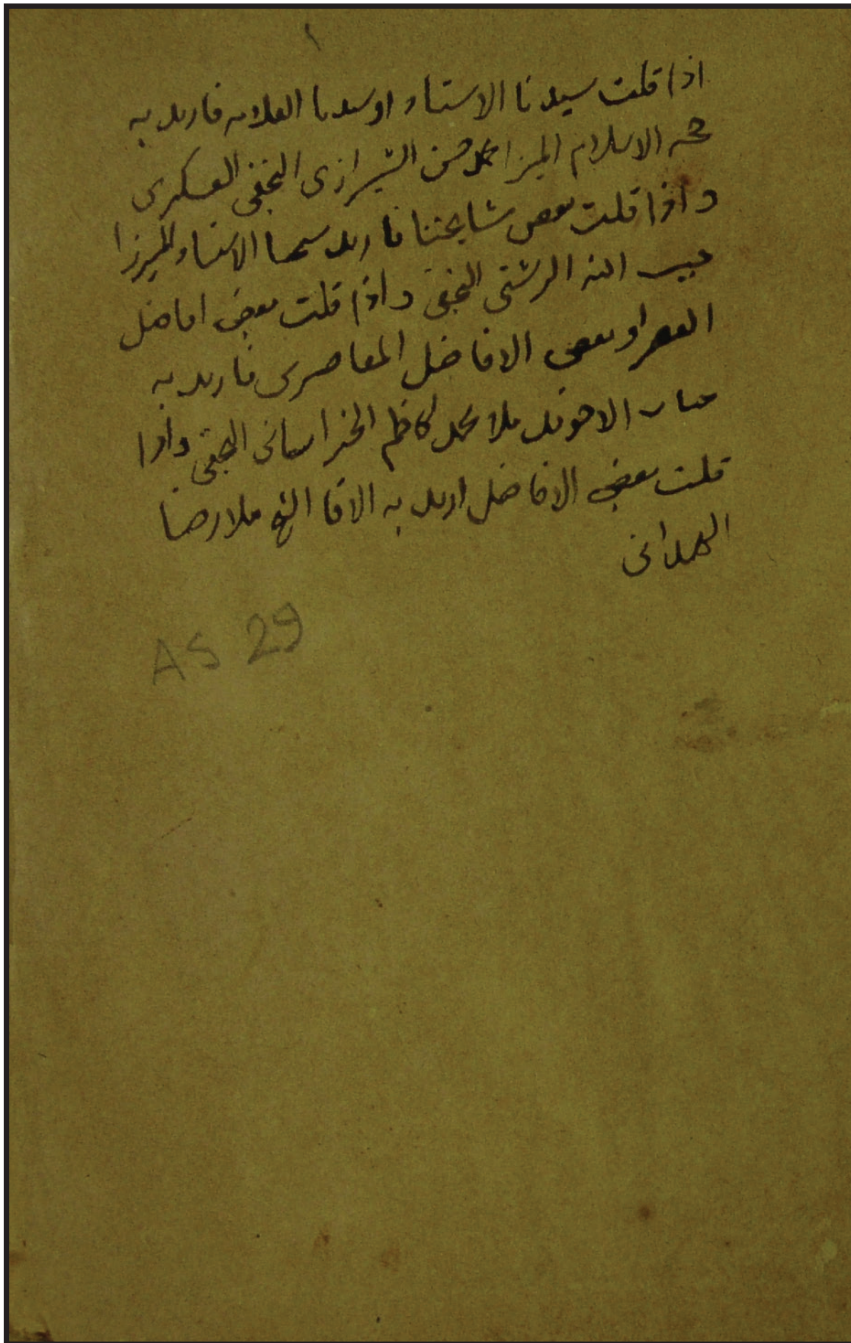 ١
اذا قلت سيدنا الاستاد او سيدنا العلامه فاريد به
حجه الاسلام الميرزا محمد حسن الشيرازى النجفى العسكرى
و اذا قلت بعض مشايخنا فاريد شيخنا الاستاد الميرزا
حبيب الله الرشتى النجفى و اذا قلت بعض افاضل
العصر او بعض الافاضل المعاصرين فاريد به
جناب الاخوند ملا محمد كاظم الخراسانى النجفى و اذا
قلت بعض الافاضل اريد به الاقا ملا رضا
الهمدانى
AS 29